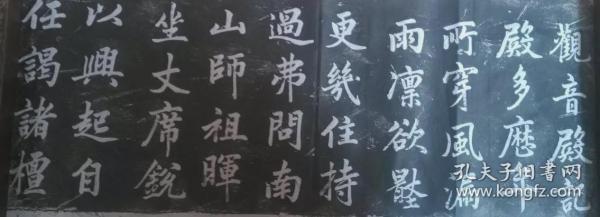 觀音殿記
殿多歷
所穿風漏
雨凛欲
更幾住持
過弗問南
山師祖暉
坐丈席銳
以興起自
任謁諸檀
孔夫子旧书网
www.kongfz.com